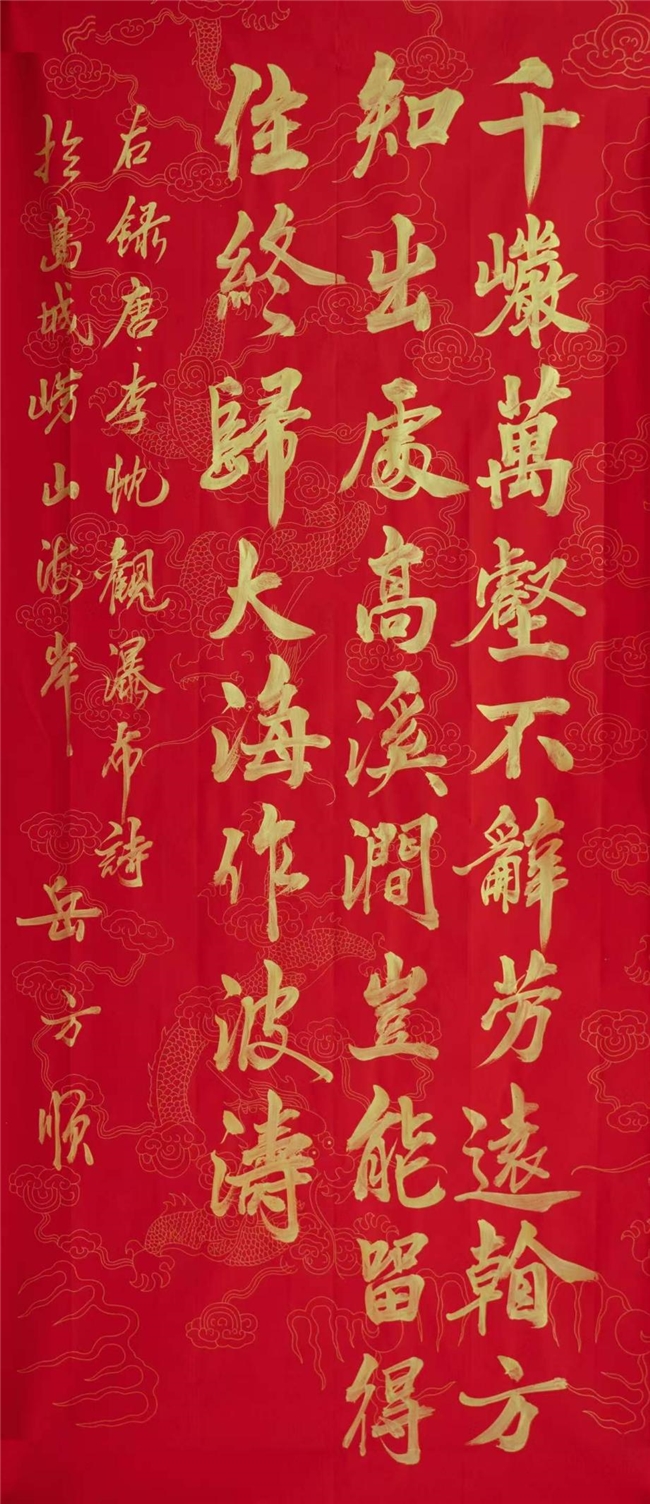 千巖萬壑不辭勞遠看方
知出處高溪澗豈能留得
住終歸大海作波濤
右錄唐·李忱觀瀑布詩
於島城嶗山海岸 岳方順